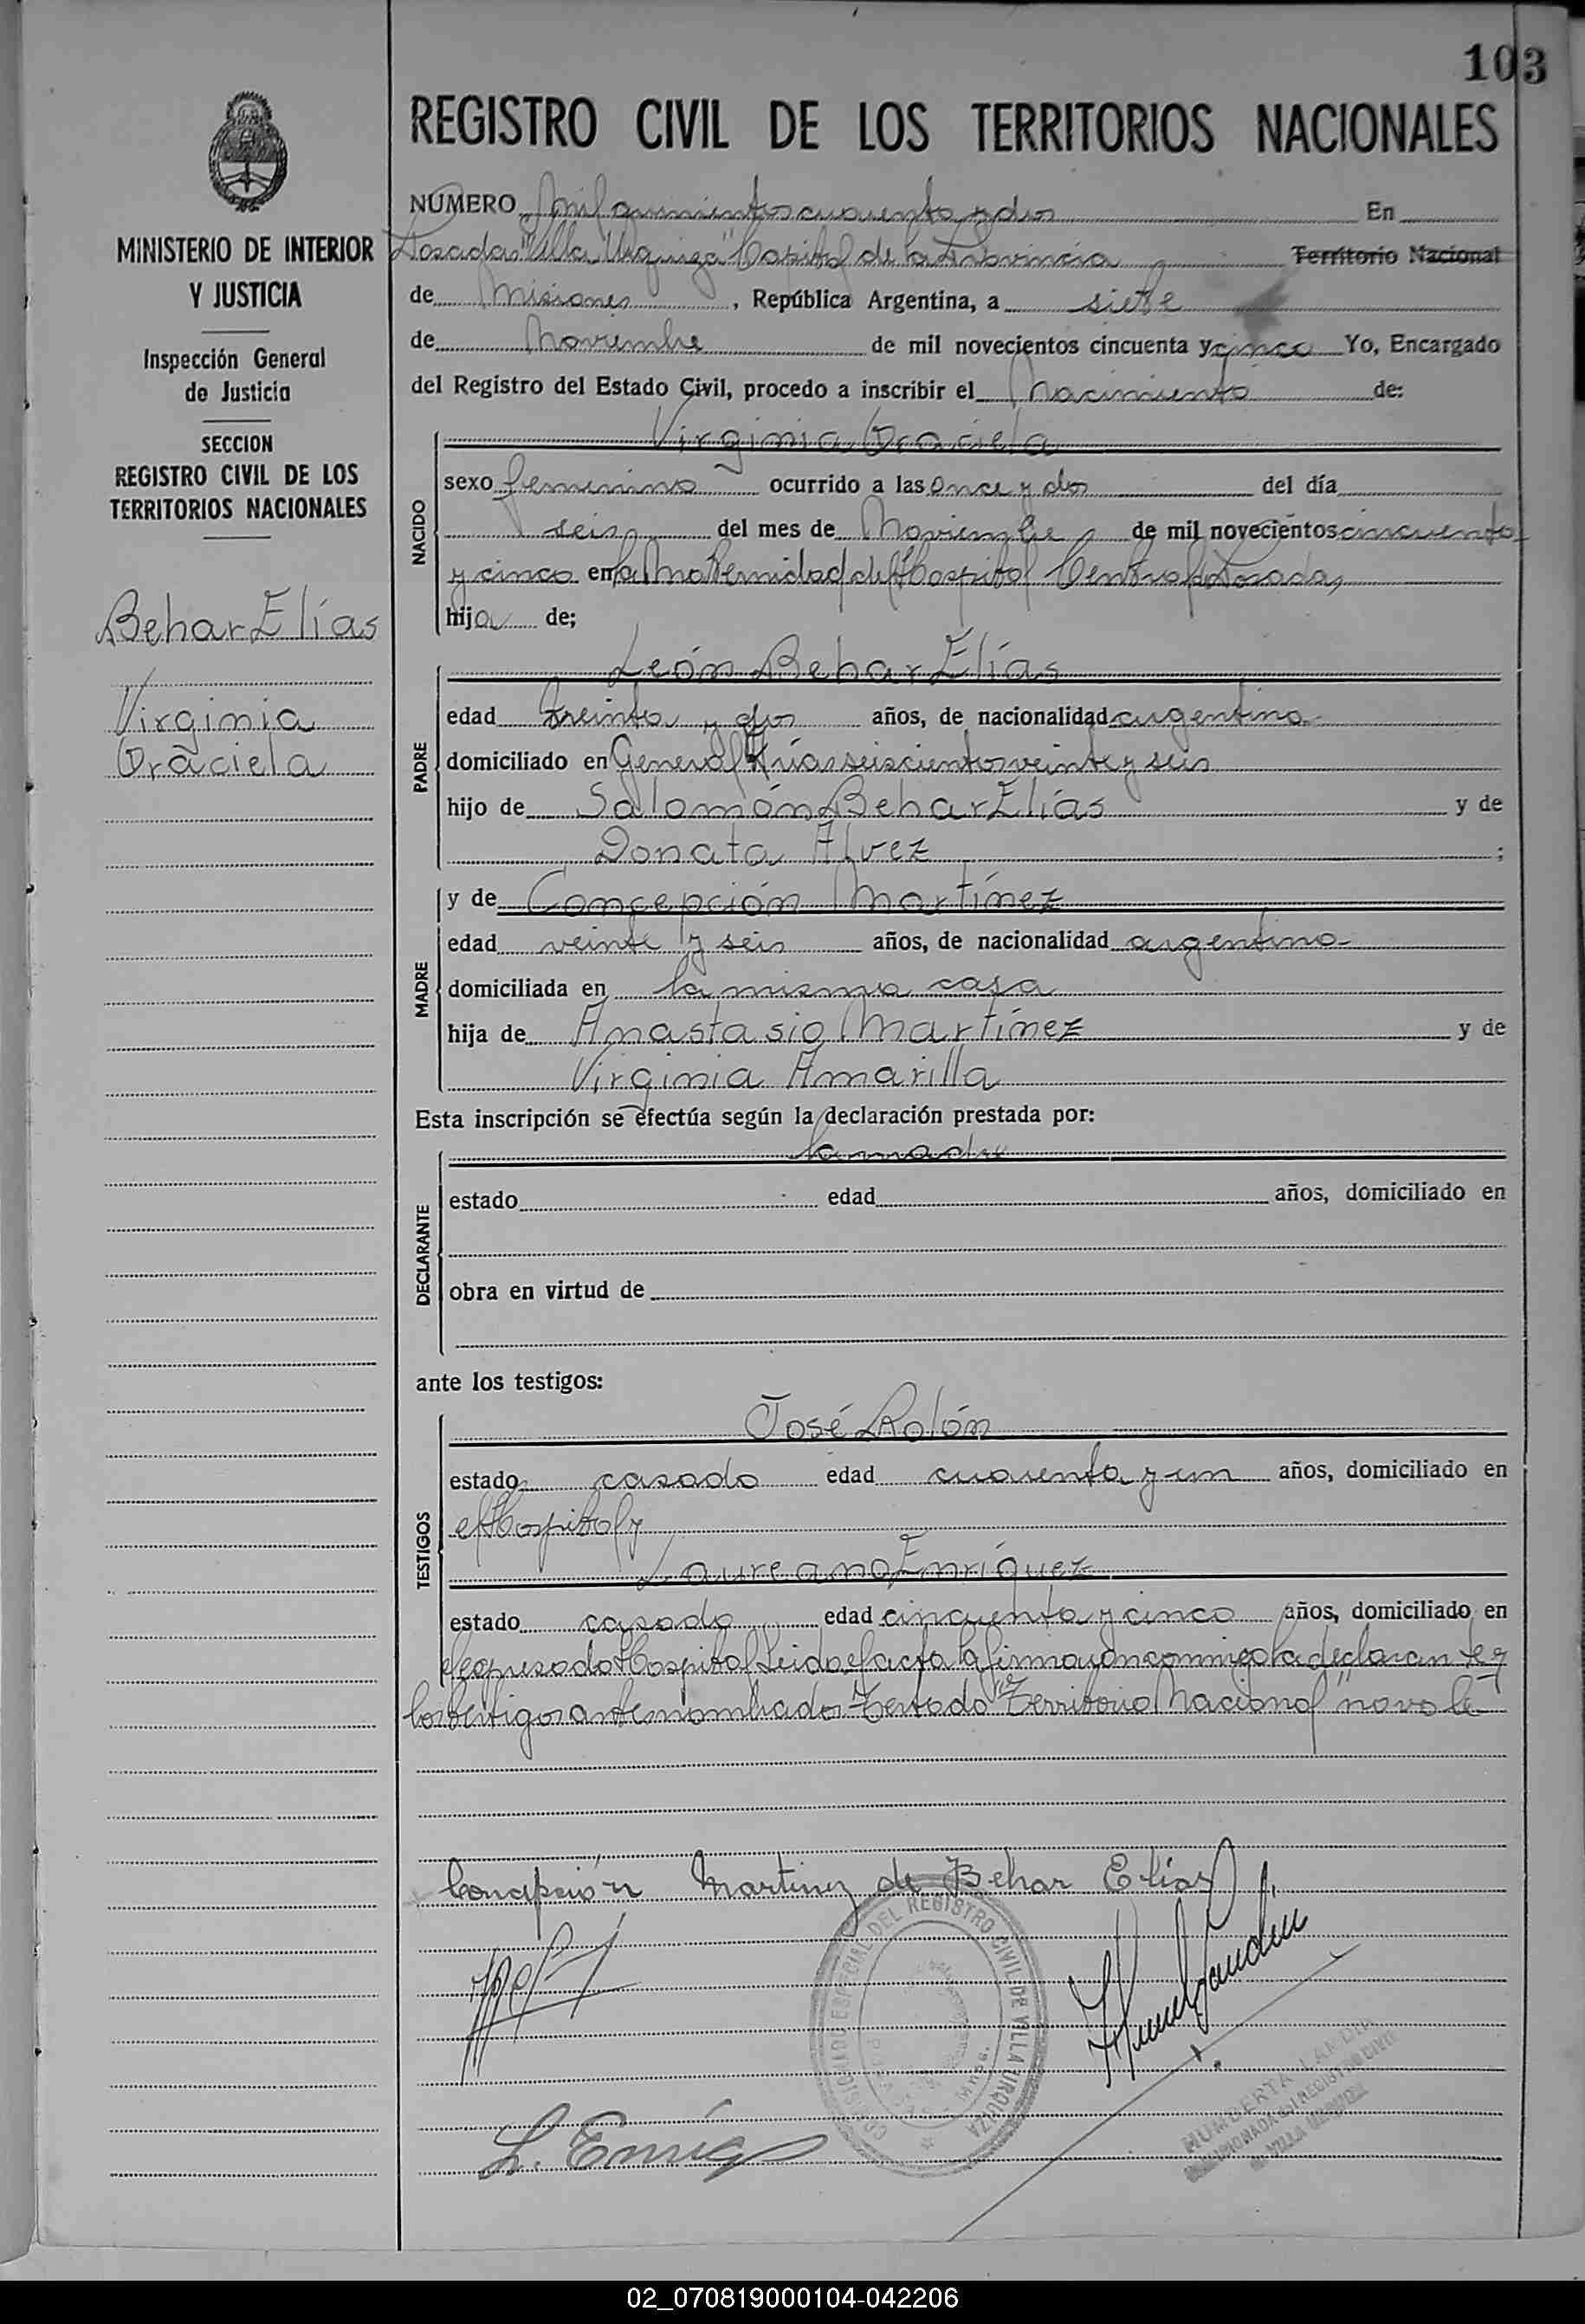 103
REGISTRO CIVIL DE LOS TERRITORIOS NACIONALES
MINISTERIO DE INTERIOR
Y JUSTICIA
Inspección General
de Justicia
SECCION
REGISTRO CIVIL DE LOS
TERRITORIOS NACIONALES
Behar Elías
Virginia
Graciela
NUMERO Mil quinientos cuarenta y dos En
Posadas "Villa Urquiza" Capital de la Provincia Territorio Nacional
de Misiones, República Argentina, a siete
de Noviembre de mil novecientos cincuenta y cinco Yo, Encargado
del Registro del Estado Civil, procedo a inscribir el Nacimiento de:
NACIDO
Virginia Graciela
sexo femenino ocurrido a las once y dos del día
seis del mes de Noviembre de mil novecientos cincuenta
y cinco en la Maternidad del Hospital Central Posadas,
hija de;
PADRE
León Behar Elías
edad treinta y dos años, de nacionalidad argentina
domiciliado en General Frías seiscientos veinte y seis
hijo de Salomón Behar Elías y de
Donata Alvez ;
MADRE
y de Concepción Martínez
edad veinte y seis años, de nacionalidad argentina
domiciliada en la misma casa
hija de Anastasio Martínez y de
Virginia Amarilla
Esta inscripción se efectúa según la declaración prestada por:
DECLARANTE
la madre
estado edad años, domiciliado en
obra en virtud de
ante los testigos:
TESTIGOS
José Rolón
estado casado edad cuarenta y un años, domiciliado en
el Hospital y
Laureano Enríquez
estado casado edad cincuenta y cinco años, domiciliado en
el expresado Hospital Leida el acta la firmaron conmigo la declarante y
los testigos antes nombrados Testado "Territorio Nacional" no vale
Concepción Martinez de Behar Elías
L. Enriq
COMISIONADO ESPECIAL DEL REGISTRO CIVIL DE VILLA URQUIZA
HUMBERTA LANDIN
VILLA URQUIZA
02_070819000104-042206